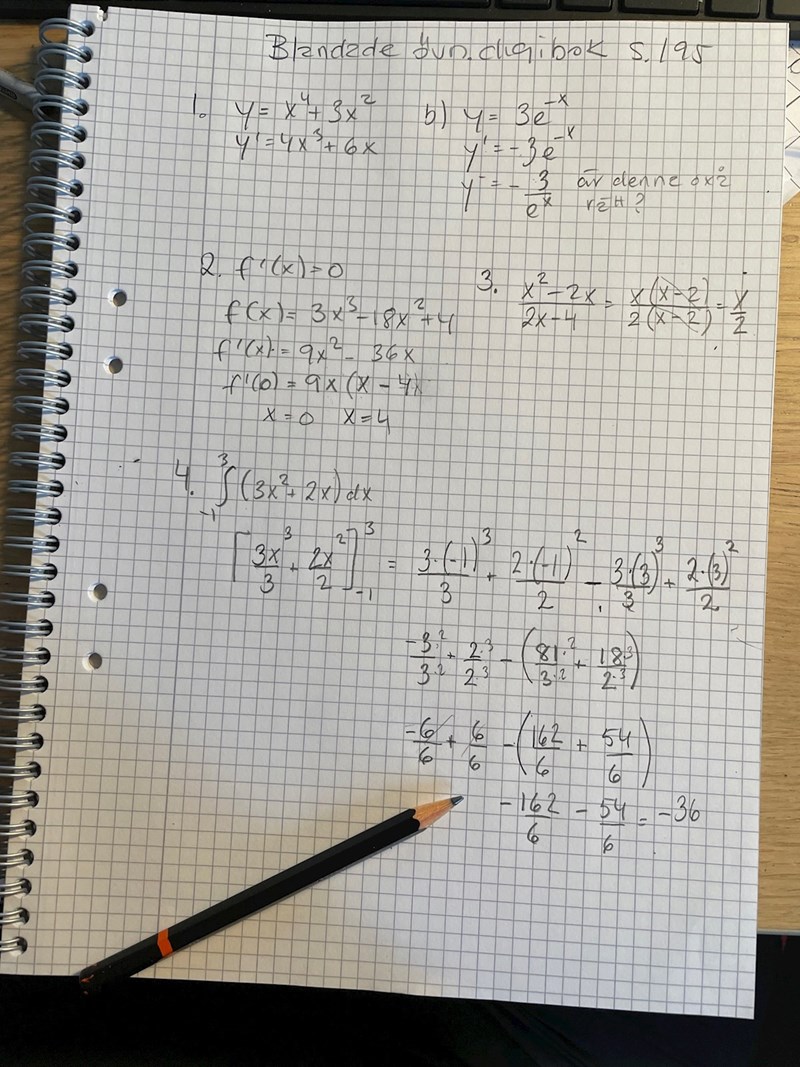 Blandade övn. digibok s. 195
1. y = x⁴ + 3x²
y' = 4x³ + 6x
b) y = 3e⁻ˣ
y' = -3e⁻ˣ
y' = -3/eˣ är denne oxå
rätt?
2. f'(x) = 0
f(x) = 3x³ - 18x² + 4
f'(x) = 9x² - 36x
f'(0) = 9x(x - 4)
x = 0 x = 4
3. (x² - 2x)/(2x - 4) = x(x - 2)/2(x - 2) = x/2
4. ∫₋₁³ (3x² + 2x) dx
[3x³/3 + 2x²/2]₋₁³ = 3·(-1)³/3 + 2·(-1)²/2 - 3·(3)³/3 + 2·(3)²/2
-3·2/3·2 + 2·3/2·3 - (81·2/3·2 + 18·3/2·3)
-6/6 + 6/6 - (162/6 + 54/6)
-162/6 - 54/6 = -36